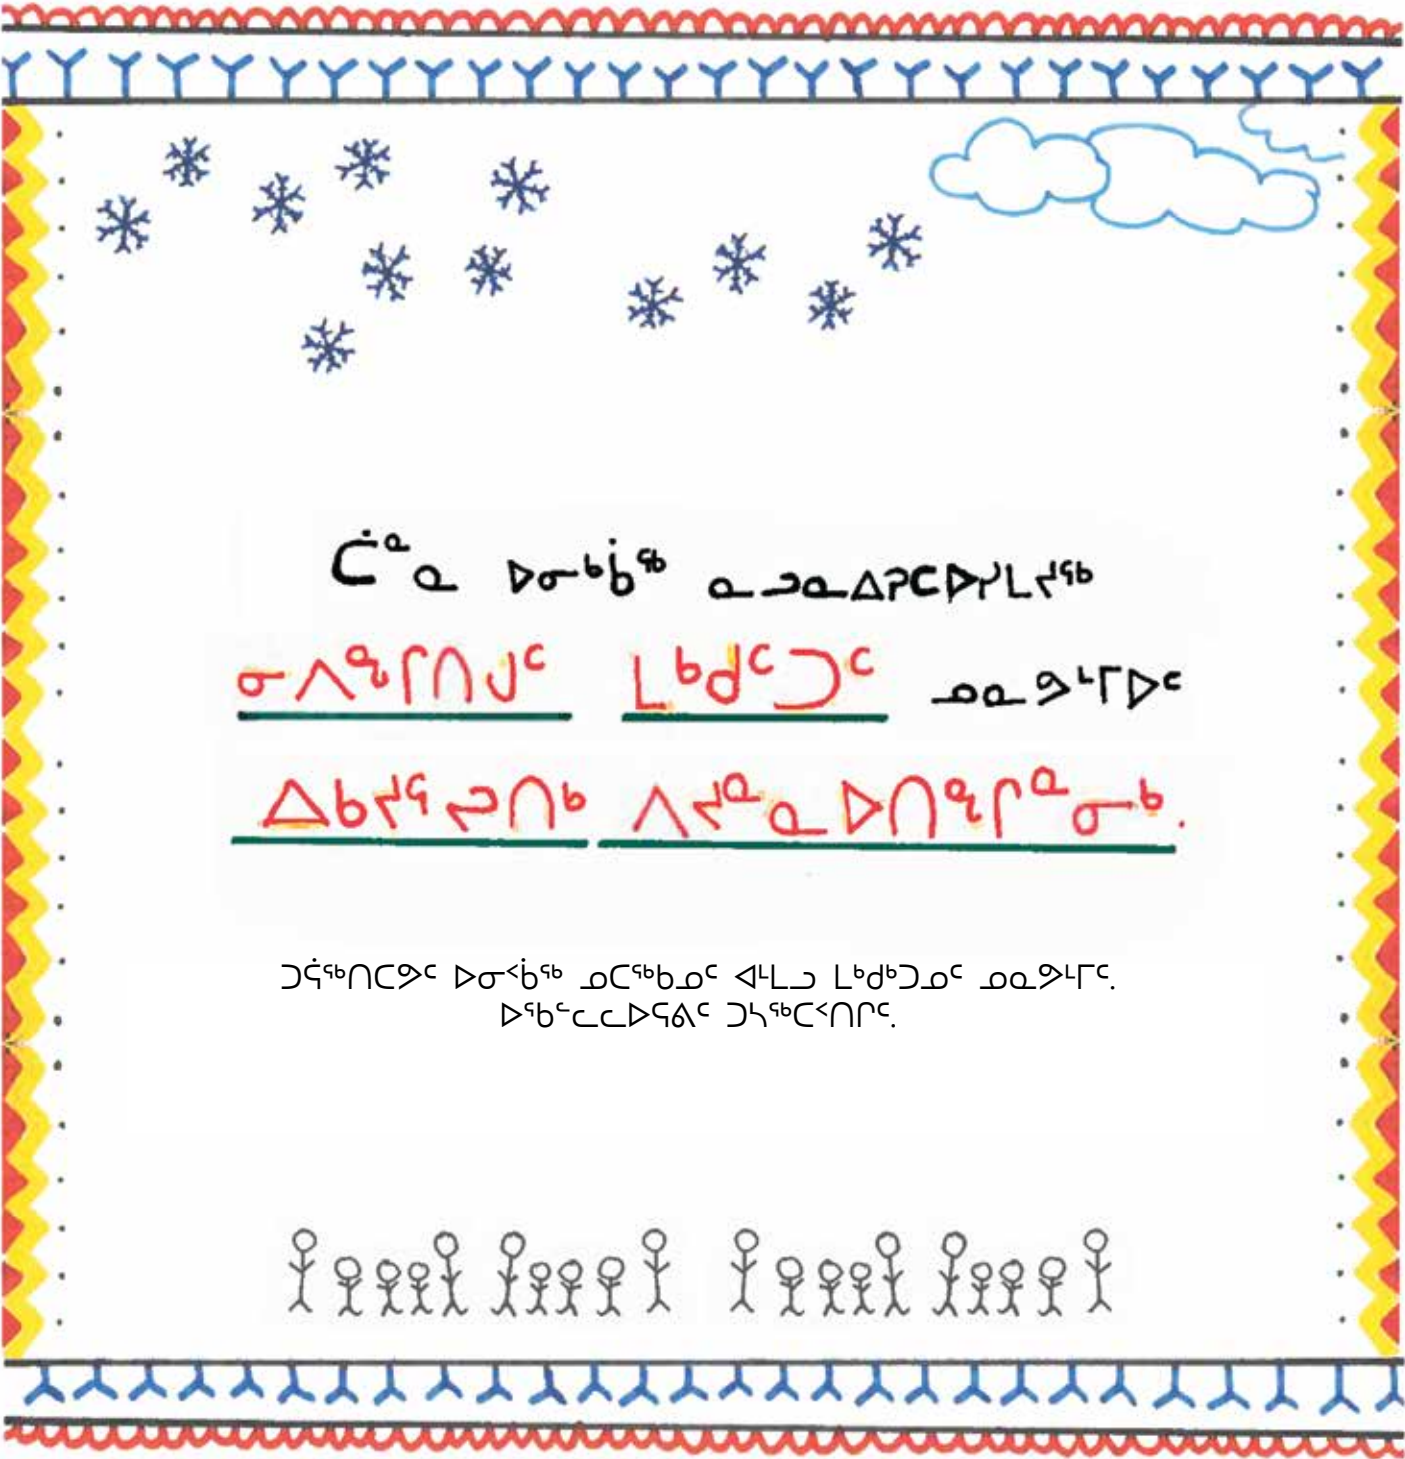 ᑖᓐᓇ ᐅᓂᒃᑳᖅ ᓇᓗᓇᐃᕈᑕᐅᓯᒪᔪᖅ
ᓂᐱᖏᑎᒍᑦ ᒪᒃᑯᑦᑐᑦ ᓄᓇᕗᒻᒥᐅᑦ
ᐃᑲᔪᕐᓗᑎᒃ ᐱᔪᓐᓇᐅᑎᖏᓐᓂᒃ.
ᑐᕌᖅᑎᑕᕗᑦ ᐅᓂᑉᑳᖅ ᓄᑕᖅᑲᓄᑦ ᐊᒻᒪᓗ ᒪᒃᑯᒃᑐᓄᑦ ᓄᓇᕗᒻᒥᑦ.
ᐅᖃᓪᓚᓚᐅᕋᕕᑦ ᑐᓴᖅᑕᑉᑎᒋᑦ.